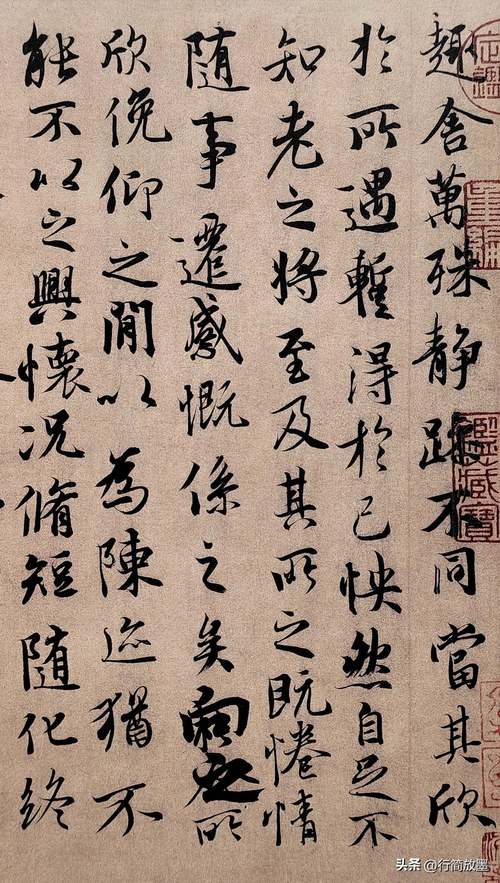 趣舍萬殊静躁不同當其欣
於所遇暫得於己怏然自足不
知老之將至及其所之既惓情
随事遷感慨係之矣向之所
欣俛仰之閒以為陳迹猶不
能不以之興懷况脩短随化終
定鑑
重編
鑑藏寶
头条 @行简放墨